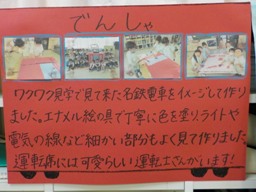 でんしゃ
ワクワク見学で見て来た名鉄電車をイメージして作り
ました。エナメル絵の具で丁寧に色を塗りライトや
電気の線など細かい部分もよく見て作りました
運転席には可愛らしい運転士さんがいます!